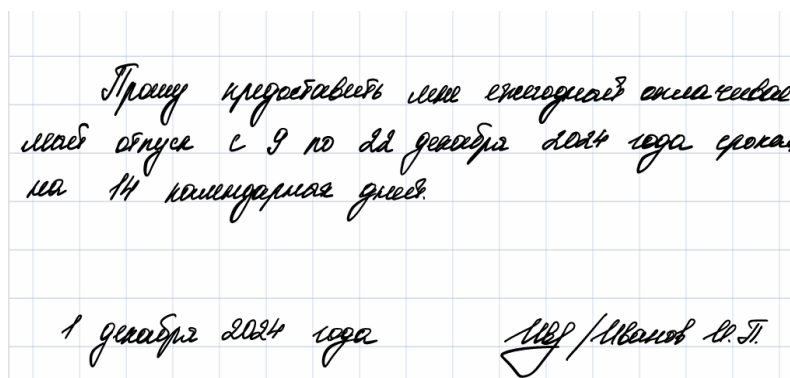 Прошу предоставить мне ежегодный оплачивае
мый отпуск с 9 по 22 декабря 2024 года сроком
на 14 календарных дней.
1 декабря 2024 года /Иванов И.П.